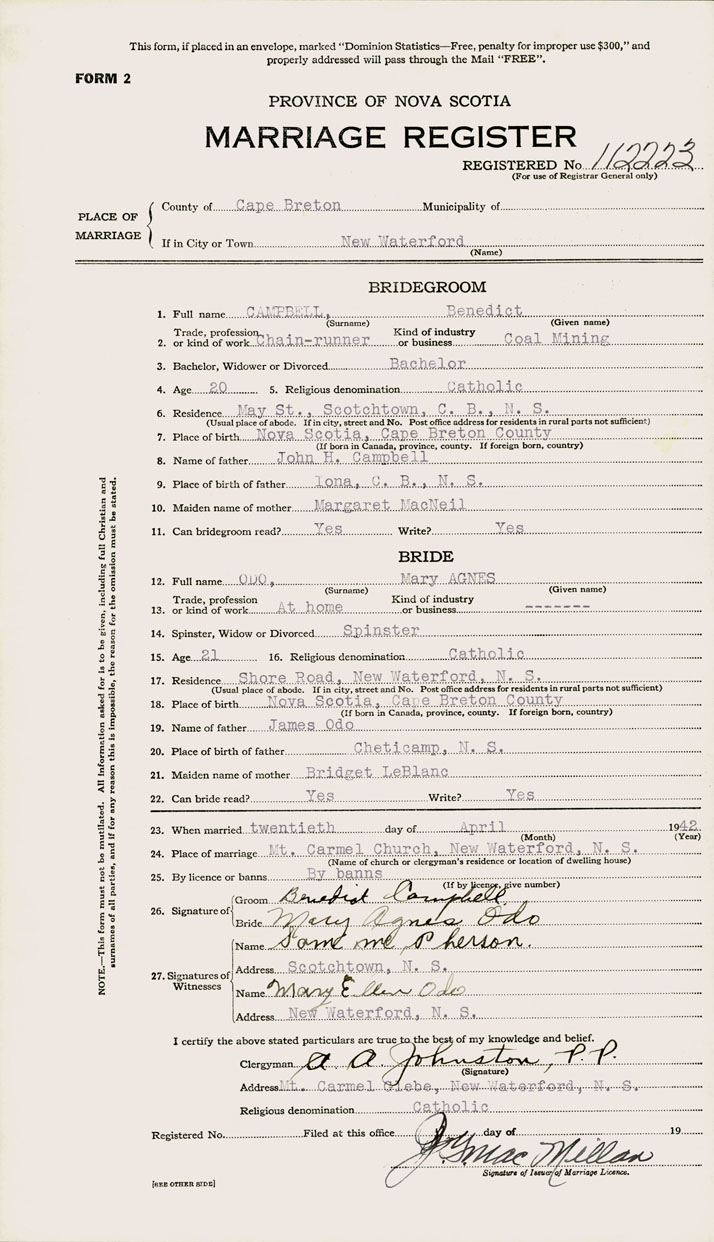 This form, if placed in an envelope, marked "Dominion Statistics—Free, penalty for improper use $300," and
properly addressed will pass through the Mail "FREE".
FORM 2
PROVINCE OF NOVA SCOTIA
MARRIAGE REGISTER
REGISTERED No. 112223
(For use of Registrar General only)
PLACE OF MARRIAGE
County of Cape Breton Municipality of
If in City or Town New Waterford
(Name)
BRIDEGROOM
1. Full name CAMPBELL, Benedict
(Surname) (Given name)
2. Trade, profession or kind of work Chain-runner Kind of industry or business Coal Mining
3. Bachelor, Widower or Divorced Bachelor
4. Age 20 5. Religious denomination Catholic
6. Residence May St., Scotchtown, C. B., N. S.
(Usual place of abode. If in city, street and No. Post office address for residents in rural parts not sufficient)
7. Place of birth Nova Scotia, Cape Breton County
(If born in Canada, province, county. If foreign born, country)
8. Name of father John H. Campbell
9. Place of birth of father Iona, C. B., N. S.
10. Maiden name of mother Margaret MacNeil
11. Can bridegroom read? Yes Write? Yes
BRIDE
12. Full name ODO, Mary AGNES
(Surname) (Given name)
13. Trade, profession or kind of work At home Kind of industry or business -------
14. Spinster, Widow or Divorced Spinster
15. Age 21 16. Religious denomination Catholic
17. Residence Shore Road, New Waterford, N. S.
(Usual place of abode. If in city, street and No. Post office address for residents in rural parts not sufficient)
18. Place of birth Nova Scotia, Cape Breton County
(If born in Canada, province, county. If foreign born, country)
19. Name of father James Odo
20. Place of birth of father Cheticamp, N. S.
21. Maiden name of mother Bridget LeBlanc
22. Can bride read? Yes Write? Yes
23. When married twentieth day of April 1942
(Month) (Year)
24. Place of marriage Mt. Carmel Church, New Waterford, N. S.
(Name of church or clergyman's residence or location of dwelling house)
25. By licence or banns By banns
(If by licence, give number)
26. Signature of
Groom Benedict Campbell
Bride Mary Agnes Odo
27. Signatures of Witnesses
Name Mc Pherson.
Address Scotchtown, N. S.
Name Mary Ellen Odo
Address New Waterford, N. S.
I certify the above stated particulars are true to the best of my knowledge and belief.
Clergyman A. A. Johnston, P.P.
(Signature)
Address Mt. Carmel Glebe, New Waterford, N. S.
Religious denomination Catholic
Registered No. Filed at this office day of 19
J. G. Mac Millan
Signature of Issuer of Marriage Licence.
[SEE OTHER SIDE]
NOTE.—This form must not be mutilated. All information asked for is to be given, including full Christian and
surnames of all parties, and if for any reason this is impossible, the reason for the omission must be stated.